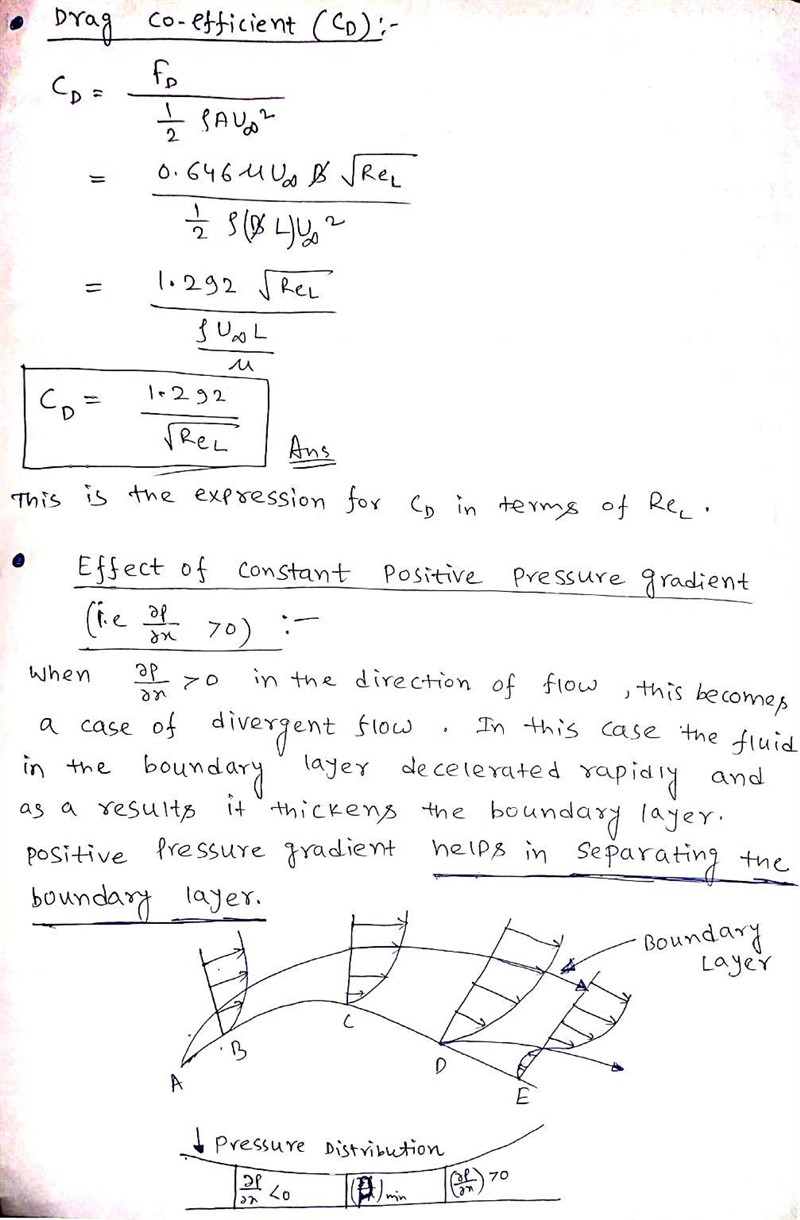 • Drag co-efficient (C_D):-
C_D = f_D / (1/2 ρAU∞²)
= 0.646 μ U∞ B √Re_L / (1/2 ρ(B L)U∞²)
= 1.292 √Re_L / (ρU∞L / μ)
C_D = 1.292 / √Re_L Ans
This is the expression for C_D in terms of Re_L.
• Effect of constant positive pressure gradient
(i.e ∂p/∂x >0) :-
When ∂p/∂x >0 in the direction of flow, this becomes
a case of divergent flow. In this case the fluid
in the boundary layer decelerated rapidly and
as a results it thickens the boundary layer.
positive pressure gradient helps in separating the
boundary layer.
Boundary
Layer
A
B
C
D
E
↓ Pressure Distribution
∂p/∂x <0
( )min
(∂p/∂x) >0